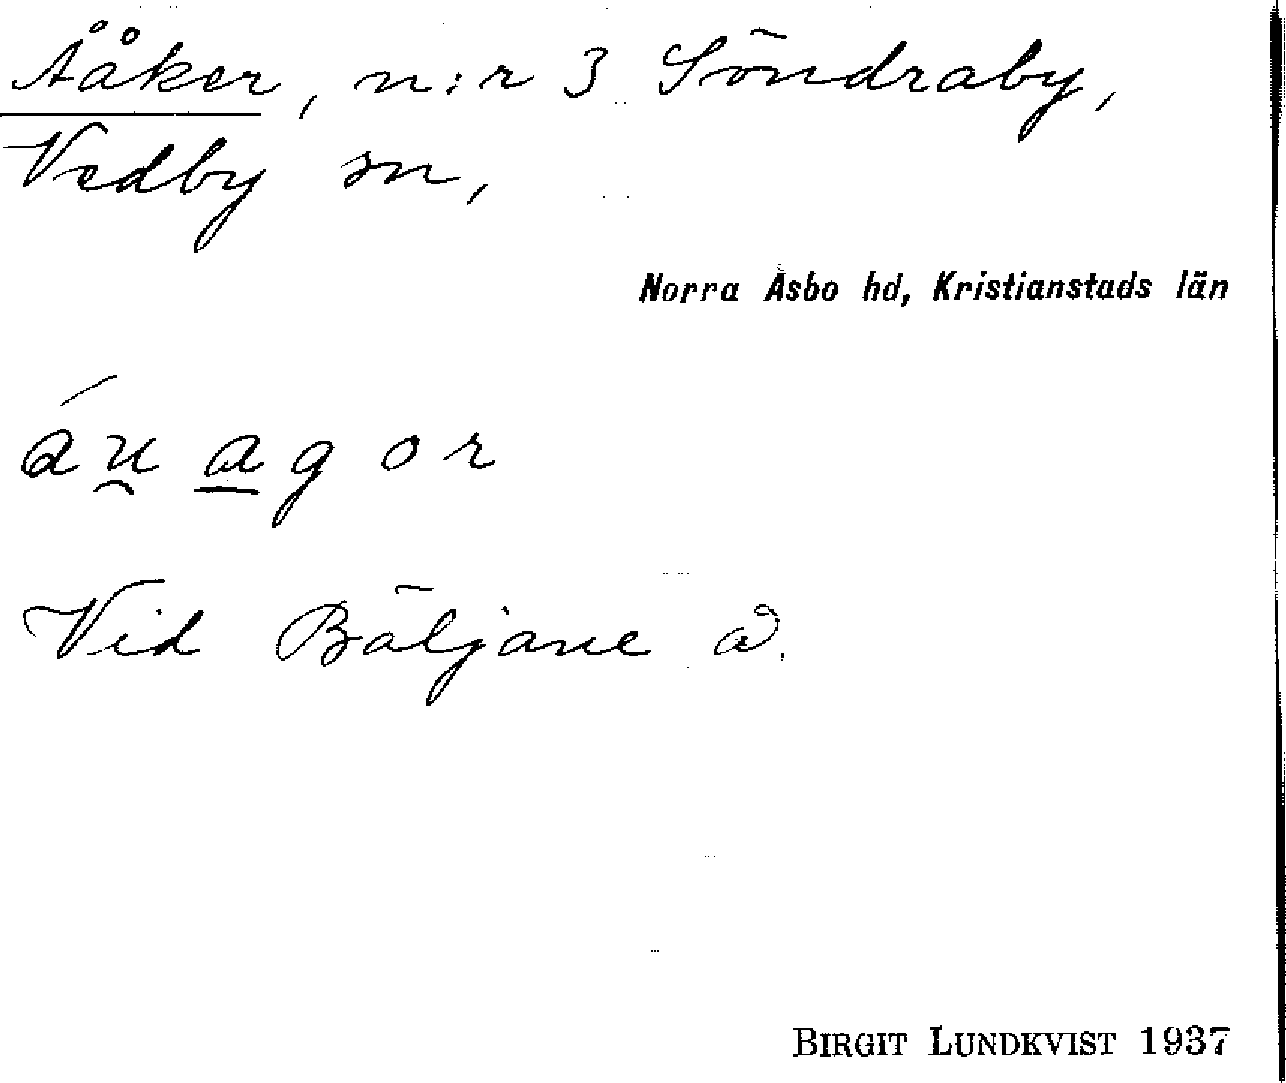 Ååker, n:r 3 Söndraby,
Vedby sn,
Norra Åsbo hd, Kristianstads län
áu̯ a̲ g o r
Vid Bäljane å.
BIRGIT LUNDKVIST 1937